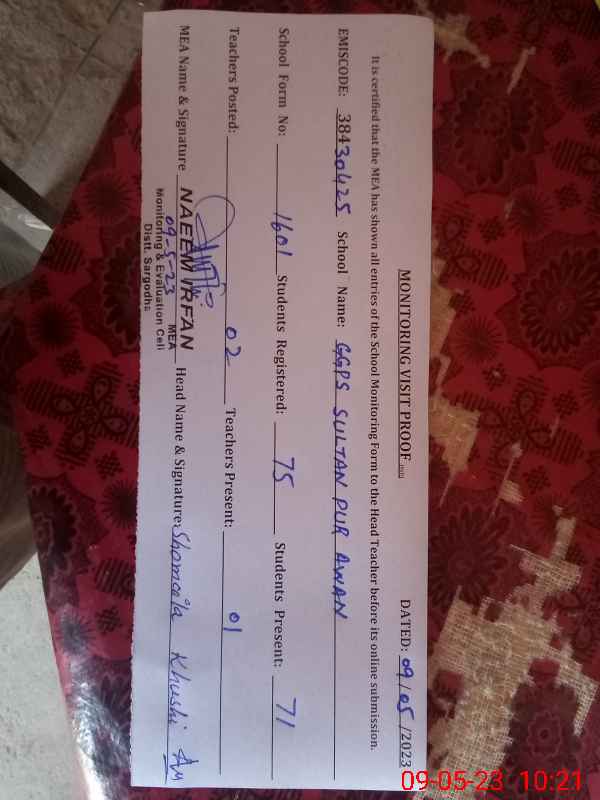 MONITORING VISIT PROOF
DATED: 09/05/2023
It is certified that the MEA has shown all entries of the School Monitoring Form to the Head Teacher before its online submission.
EMISCODE: 38430425 School Name: GGPS SULTAN PUR AWAN
School Form No: 1601 Students Registered: 75 Students Present: 71
Teachers Posted: 02 Teachers Present: 01
MEA Name & Signature NAEEM IRFAN Head Name & Signature: Khushi
09-5-23 MEA
Monitoring & Evaluation Cell
Distt. Sargodha
09-05-23 10:21